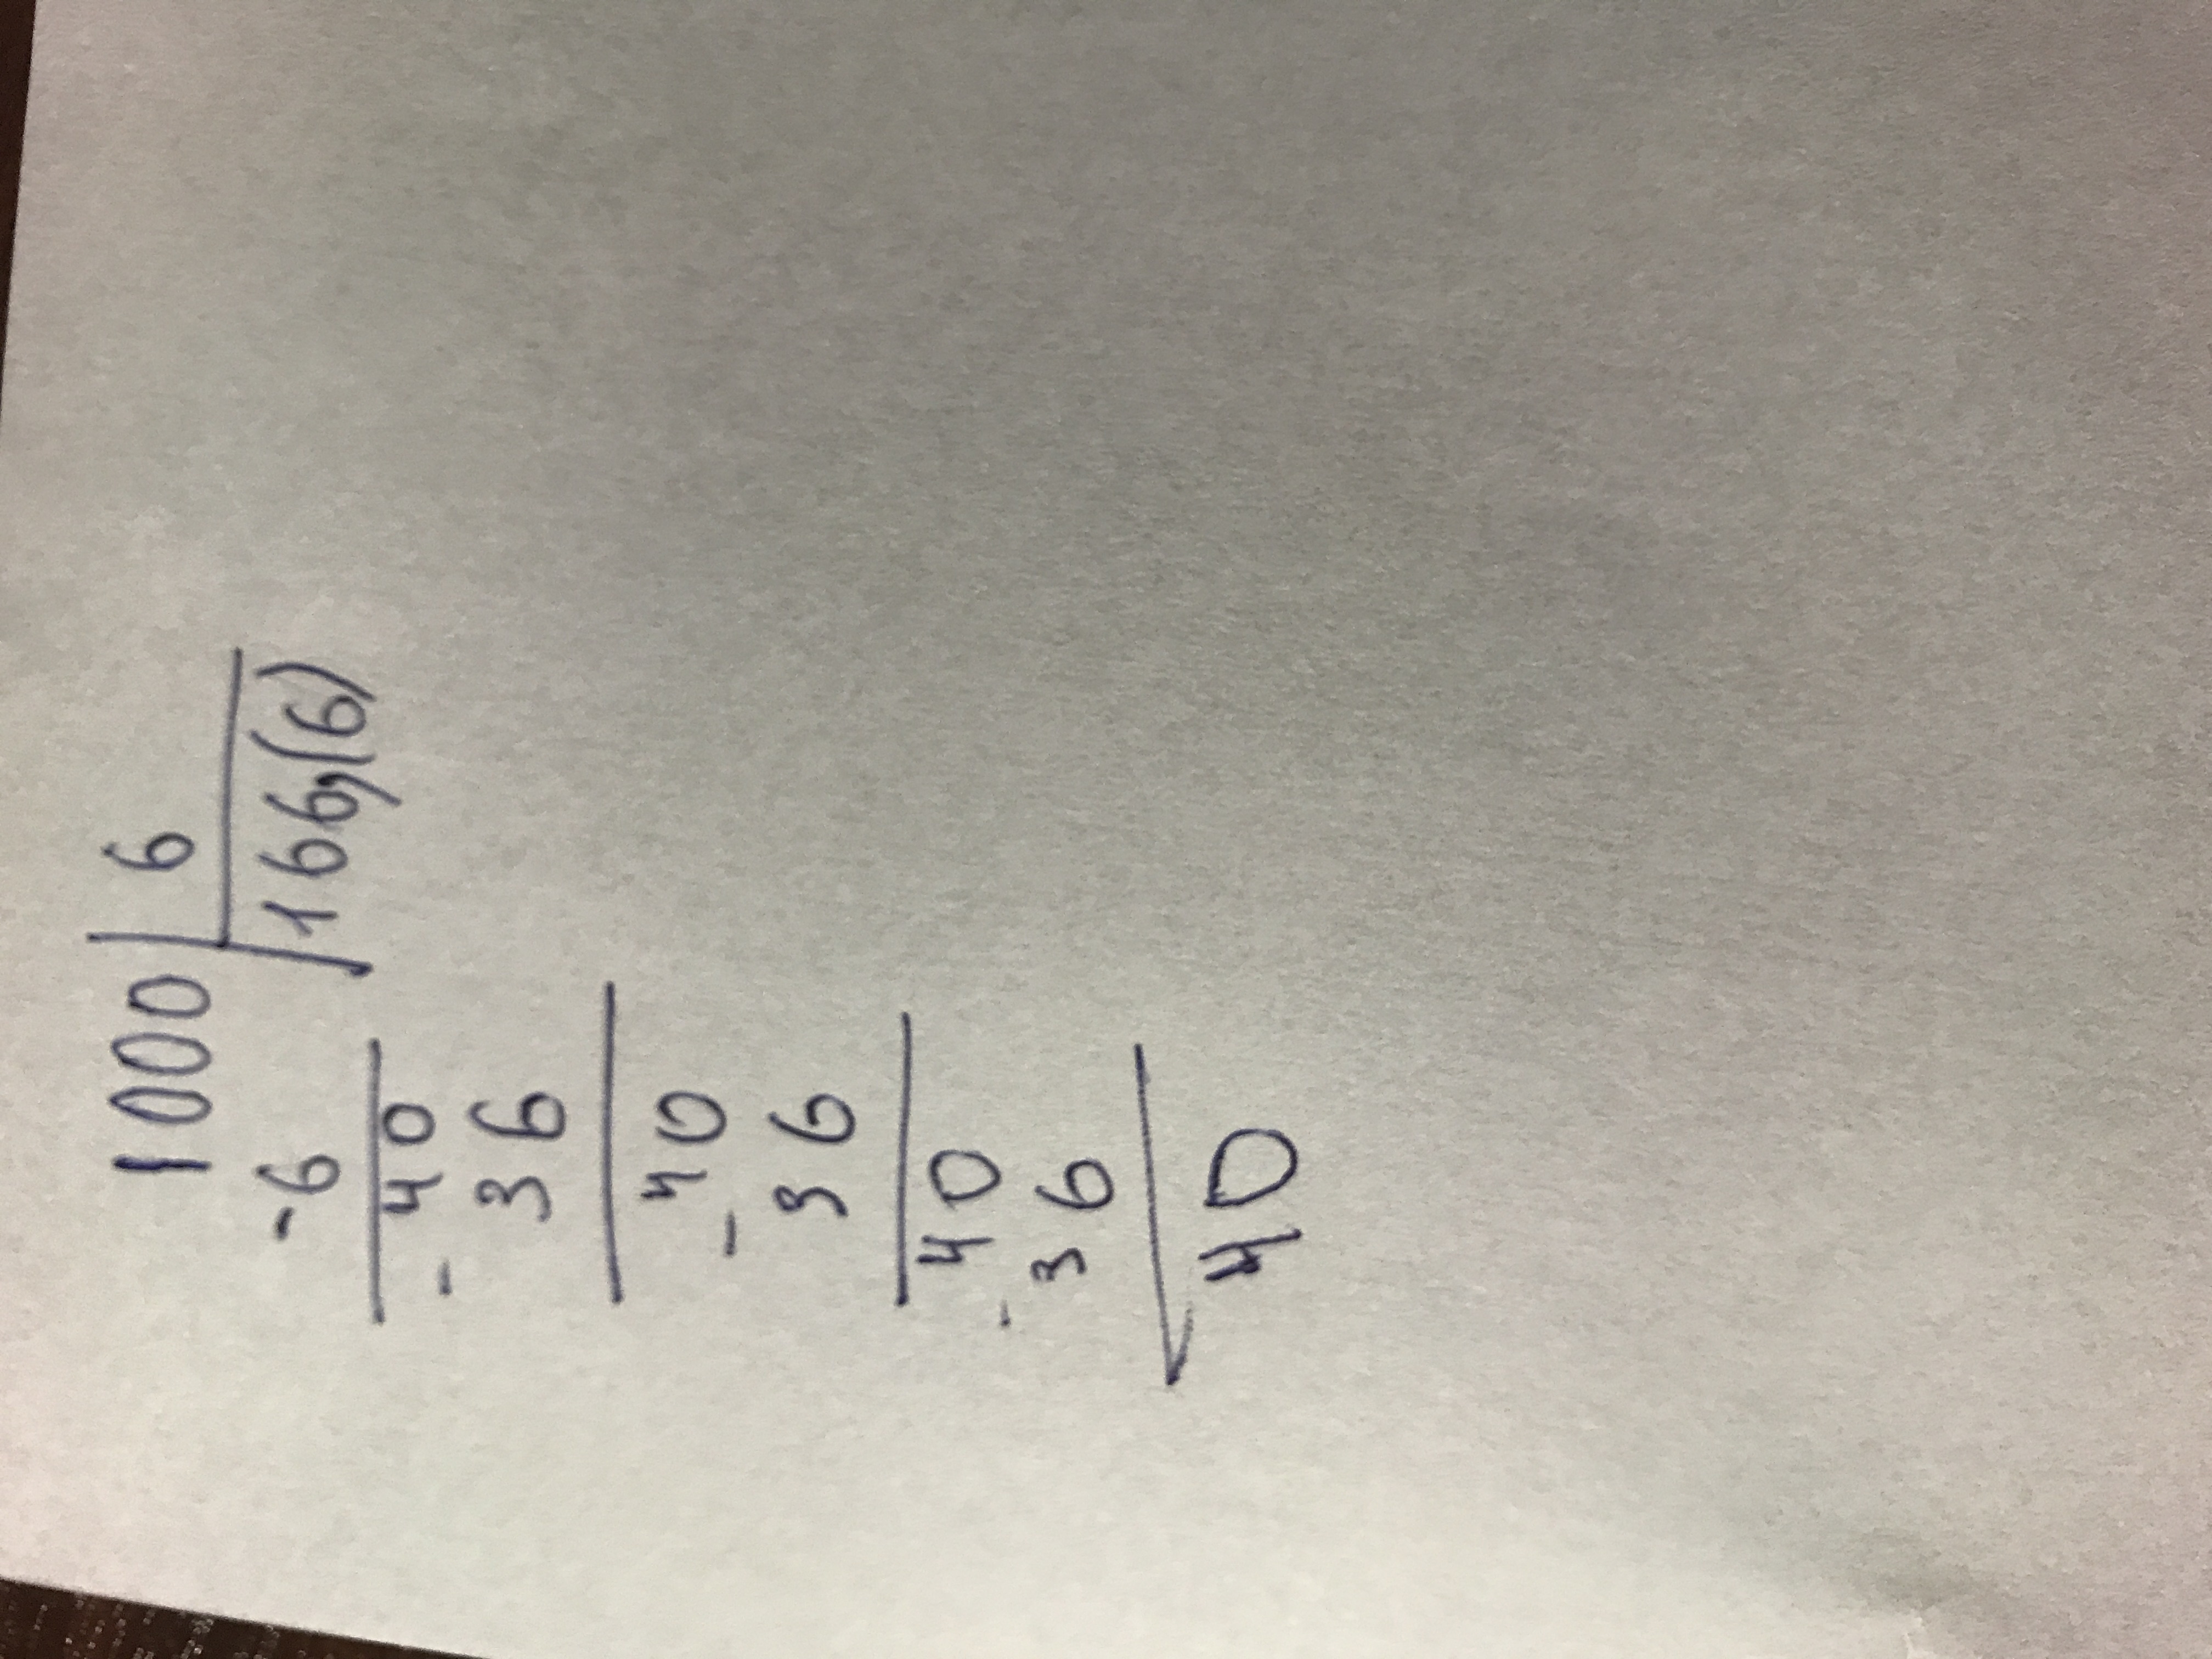 1000 6
-6 166,(6)
- 40
36
- 40
36
- 40
36
40